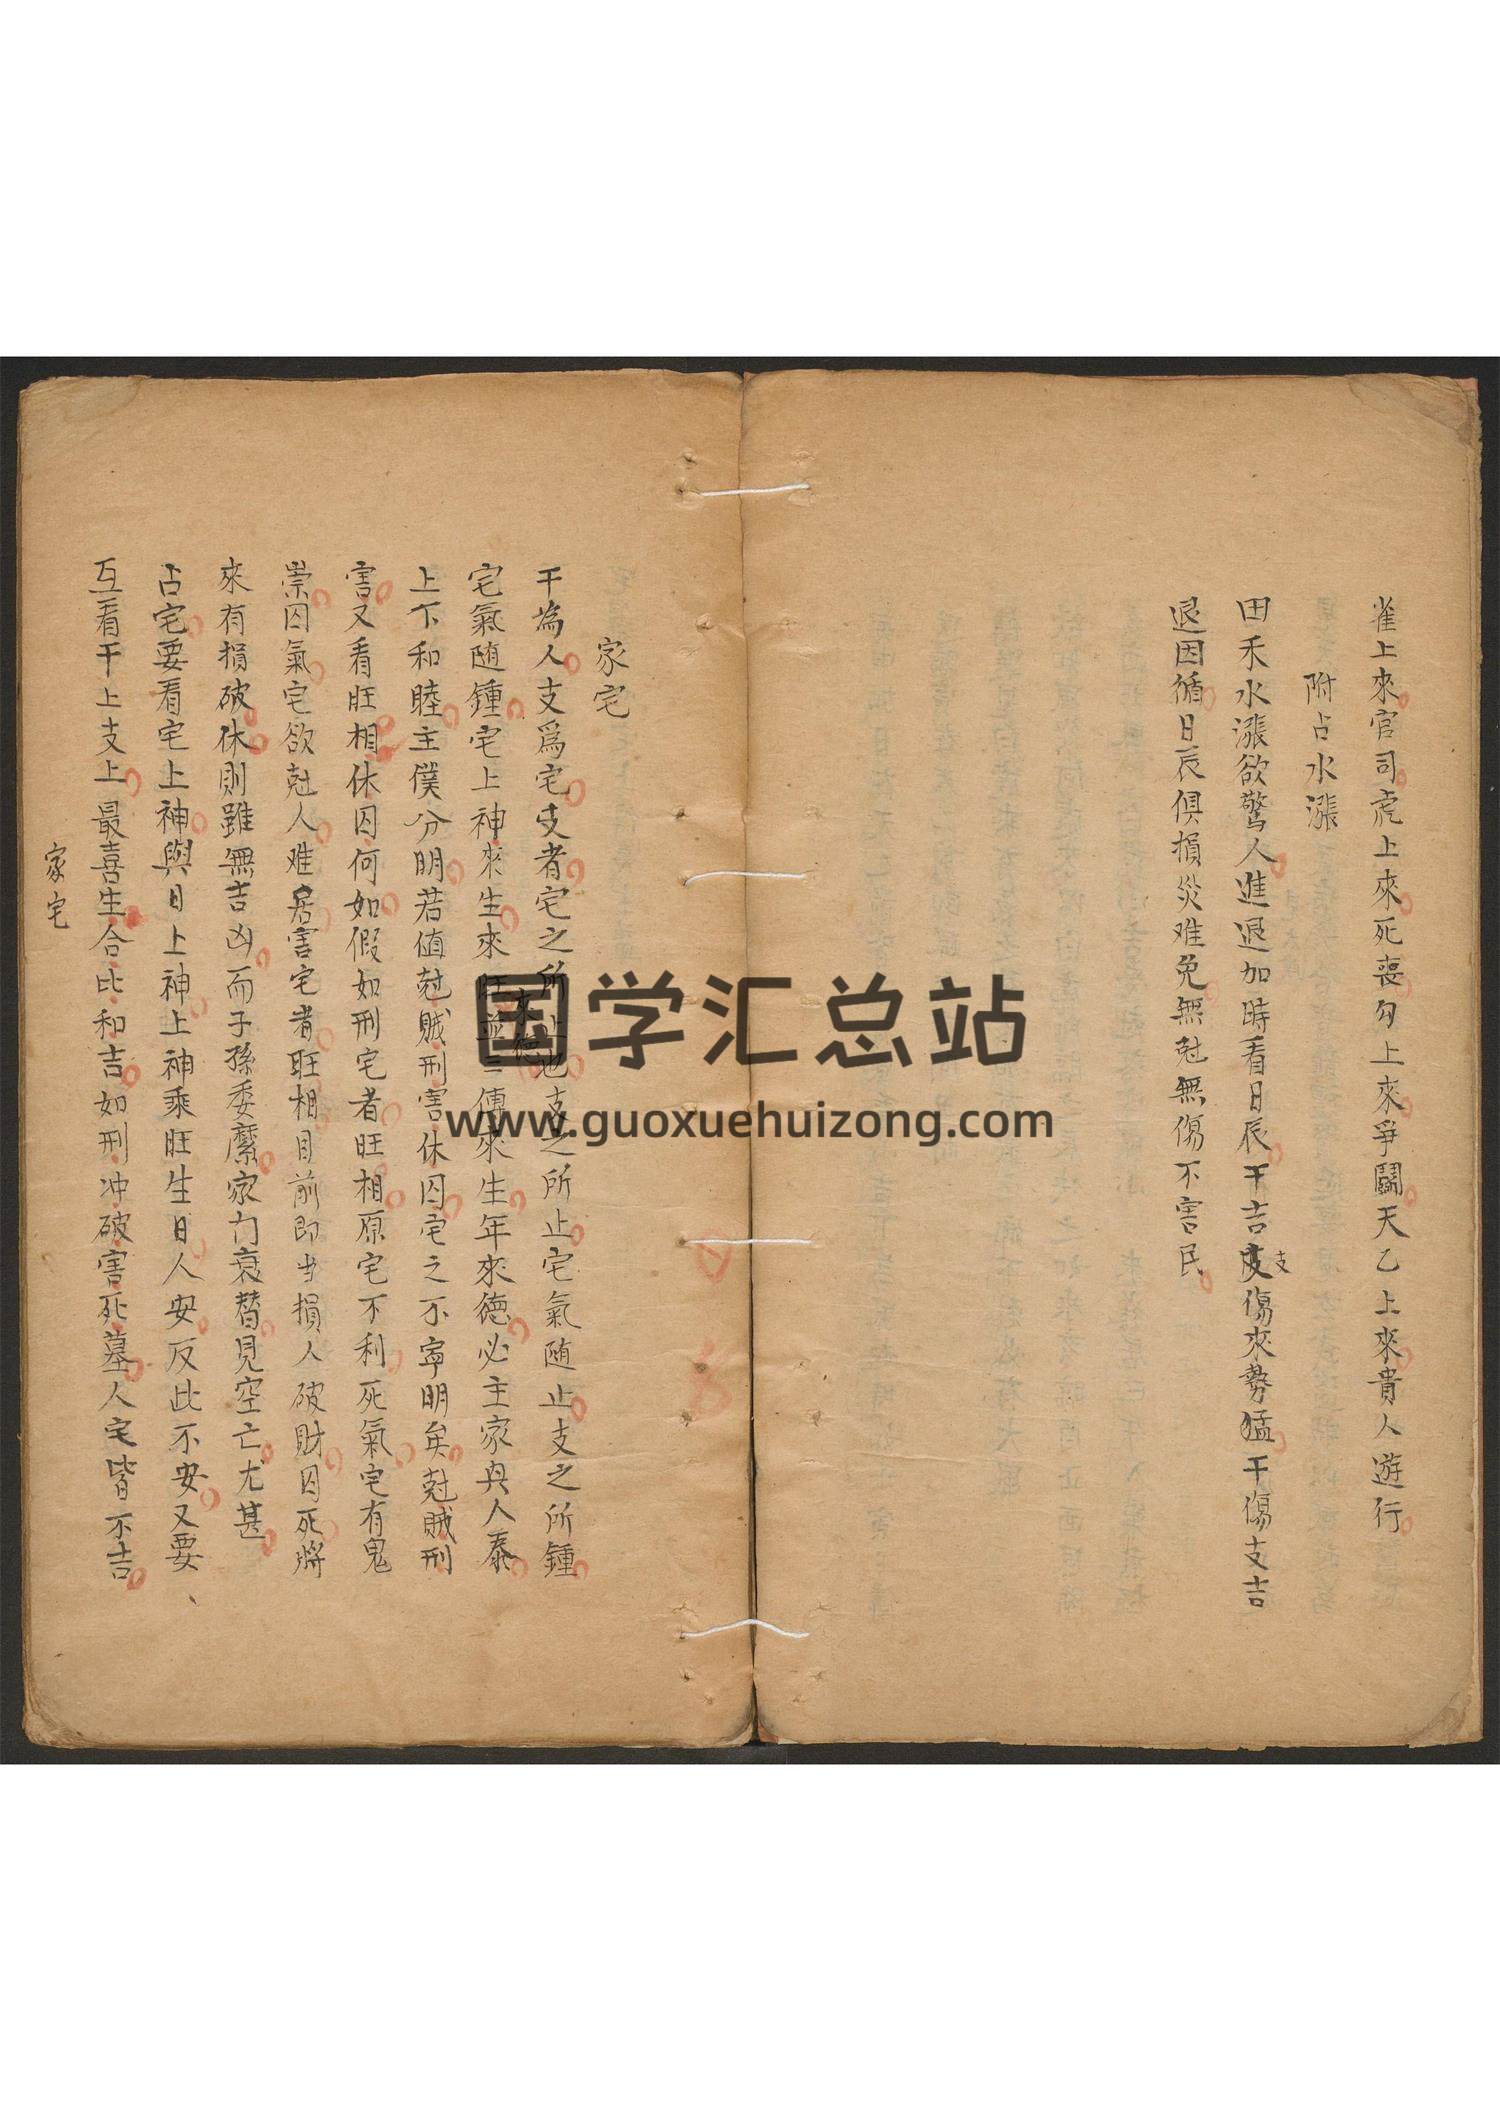 雀上來官司虎上來死喪勾上來爭鬪天乙上來貴人遊行
附占水漲
田禾水漲欲驚人進退加時看日辰干吉支傷來勢猛干傷支吉
退因循日辰俱損災难免無尅無傷不害民
家宅
干為人支爲宅支者宅之所止也支之所止宅氣随止支之所鍾
宅氣随鍾宅上神來生來旺並三傳來生年來德必主家與人泰
來德
上下和睦主僕分明若值尅賊刑害休囚宅之不寧明矣尅賊刑
害又看旺相休囚何如假如刑宅者旺相原宅不利死氣宅有鬼
祟囚氣宅欲尅人难居害宅者旺相目前即当損人破財囚死將
來有損破休則雖無吉凶而子孫委靡家门衰替見空亡尤甚
占宅要看宅上神與日上神上神乘旺生日人安反此不安又要
互看干上支上最喜生合比和吉如刑冲破害死墓人宅皆不吉
家宅
国学汇总站
www.guoxuehuizong.com